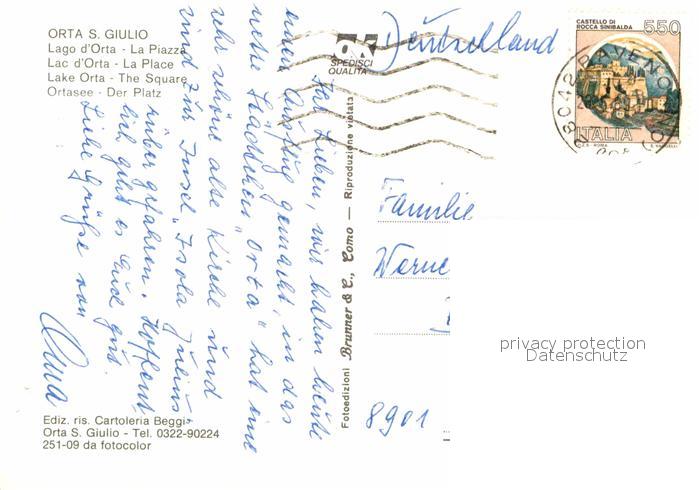 ORTA S. GIULIO
Lago d'Orta - La Piazza
Lac d'Orta - La Place
Lake Orta - The Square
Ortasee - Der Platz
Ihr Lieben, wir haben heute
einen Ausflug gemacht, in das
nette Städtchen "Orta" hat eine
sehr schöne alte Kirche und
sind zur Insel "Isola Julius"
rüber gefahren. Hoffent-
lich geht es Euch gut.
Liebe Grüße von
Oma
Ediz. ris. Cartoleria Beggi
Orta S. Giulio - Tel. 0322-90224
251-09 da fotocolor
Fotoedizioni Brunner & C., Como — Riproduzione vietata
SPEDISCI
QUALITÀ
Deutschland
CASTELLO DI
ROCCA SINIBALDA
550
ITALIA
28042 BAVENO
Familie
Werne
8901
privacy protection
Datenschutz